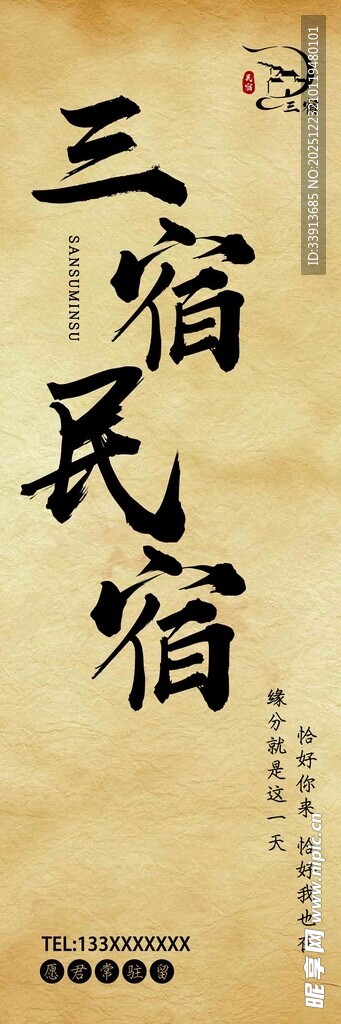 三宿民宿
SANSUMINSU
民宿
三宿
恰好你来 恰好我也在
缘分就是这一天
TEL:133XXXXXXXX
愿君常驻留
ID:33913685 NO:20251223210119480101
昵享网 www.nipic.cn